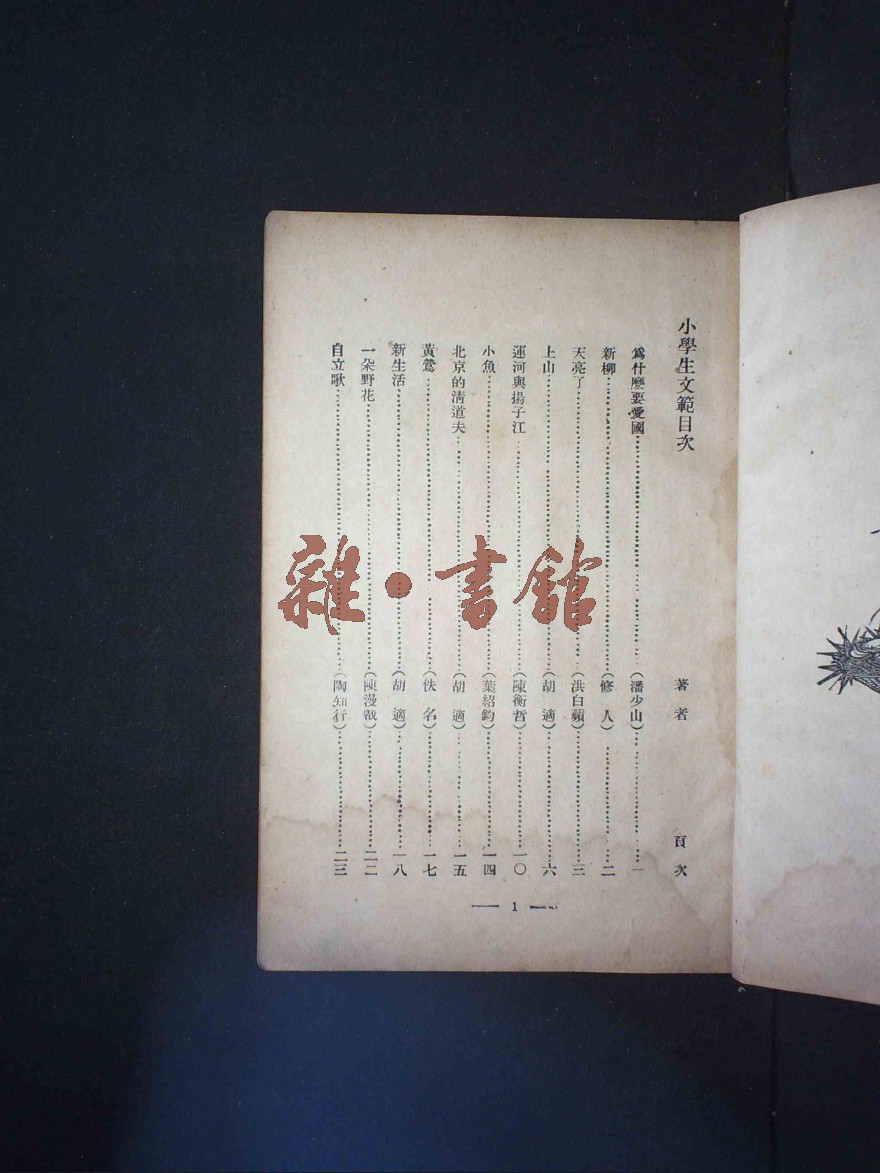 小學生文範目次 著者 頁次
爲什麽要愛國……(潘少山)……一
新柳……(修人)……二
天亮了……(洪白蘋)……三
上山……(胡適)……六
運河與揚子江……(陳衡哲)……一〇
小魚……(葉紹鈞)……一四
北京的淸道夫……(胡適)……一五
黃鶯……(佚名)……一七
新生活……(胡適)……一八
一朵野花……(陳漫哉)……二二
自立歌……(陶知行)……二三
— 1 —
雜·書館